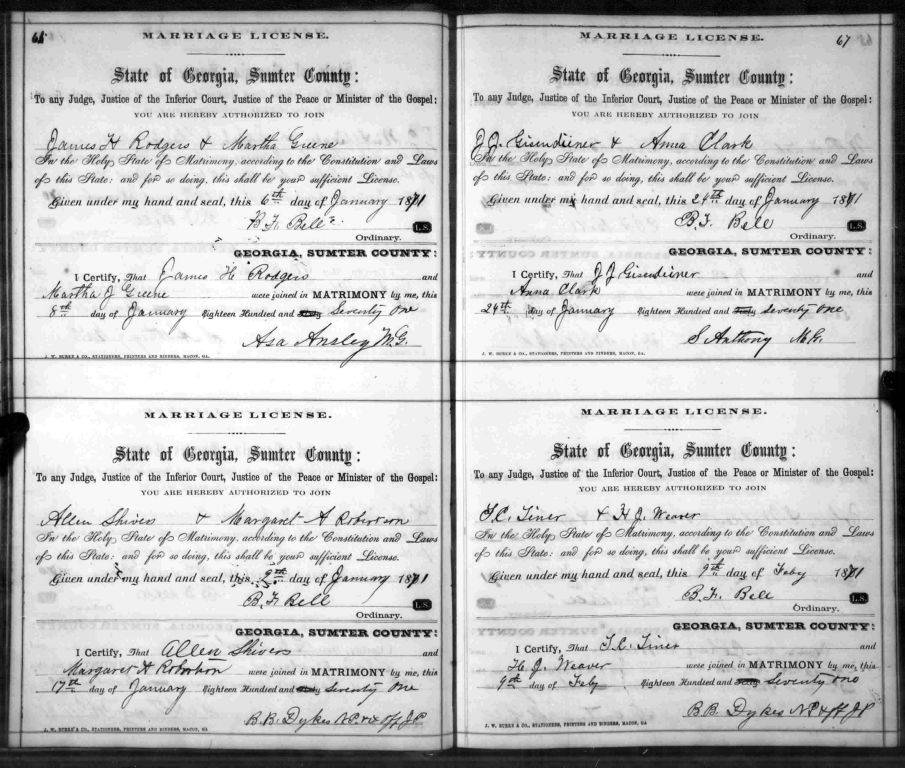 66
MARRIAGE LICENSE.
State of Georgia, Sumter County:
To any Judge, Justice of the Inferior Court, Justice of the Peace or Minister of the Gospel:
YOU ARE HEREBY AUTHORIZED TO JOIN
James H Rodgers & Martha Greene
In the Holy State of Matrimony, according to the Constitution and Laws
of this State: and for so doing, this shall be your sufficient License.
Given under my hand and seal, this 6th day of January 1871
B. F. Bell L.S.
Ordinary.
GEORGIA, SUMTER COUNTY:
I Certify, That James H. Rodgers and
Martha J Greene were joined in MATRIMONY by me, this
8th day of January Eighteen Hundred and Sixty Seventy One
Asa Ansley M.G.
J. W. BURKE & CO., STATIONERS, PRINTERS AND BINDERS, MACON, GA.
MARRIAGE LICENSE.
State of Georgia, Sumter County:
To any Judge, Justice of the Inferior Court, Justice of the Peace or Minister of the Gospel:
YOU ARE HEREBY AUTHORIZED TO JOIN
Allen Shivers & Margaret A Robertson
In the Holy State of Matrimony, according to the Constitution and Laws
of this State: and for so doing, this shall be your sufficient License.
Given under my hand and seal, this 9th day of January 1871
B. F. Bell L.S.
Ordinary.
GEORGIA, SUMTER COUNTY:
I Certify, That Allen Shivers and
Margaret A Robertson were joined in MATRIMONY by me, this
17th day of January Eighteen Hundred and Sixty Seventy One
B. B. Dykes N.P. & Off J.P
J. W. BURKE & CO., STATIONERS, PRINTERS AND BINDERS, MACON, GA
67
MARRIAGE LICENSE.
State of Georgia, Sumter County:
To any Judge, Justice of the Inferior Court, Justice of the Peace or Minister of the Gospel:
YOU ARE HEREBY AUTHORIZED TO JOIN
J. J. Gisendiener & Anna Clark
In the Holy State of Matrimony, according to the Constitution and Laws
of this State: and for so doing, this shall be your sufficient License.
Given under my hand and seal, this 24th day of January 1871
B. F. Bell L.S.
Ordinary.
GEORGIA, SUMTER COUNTY:
I Certify, That J. J. Gisendiener and
Anna Clark were joined in MATRIMONY by me, this
24th day of January Eighteen Hundred and Sixty Seventy One
S Anthony M.G.
J. W. BURKE & CO., STATIONERS, PRINTERS AND BINDERS, MACON, GA.
MARRIAGE LICENSE.
State of Georgia, Sumter County:
To any Judge, Justice of the Inferior Court, Justice of the Peace or Minister of the Gospel:
YOU ARE HEREBY AUTHORIZED TO JOIN
T. C. Tiner & H. J. Weaver
In the Holy State of Matrimony, according to the Constitution and Laws
of this State: and for so doing, this shall be your sufficient License.
Given under my hand and seal, this 9th day of Feby 1871
B. F. Bell L.S.
Ordinary.
GEORGIA, SUMTER COUNTY:
I Certify, That T. C. Tiner and
H. J. Weaver were joined in MATRIMONY by me, this
9th day of Feby Eighteen Hundred and Sixty Seventy One
B. B. Dykes N.P. & Off J.P
J. W. BURKE & CO., STATIONERS, PRINTERS AND BINDERS, MACON, GA